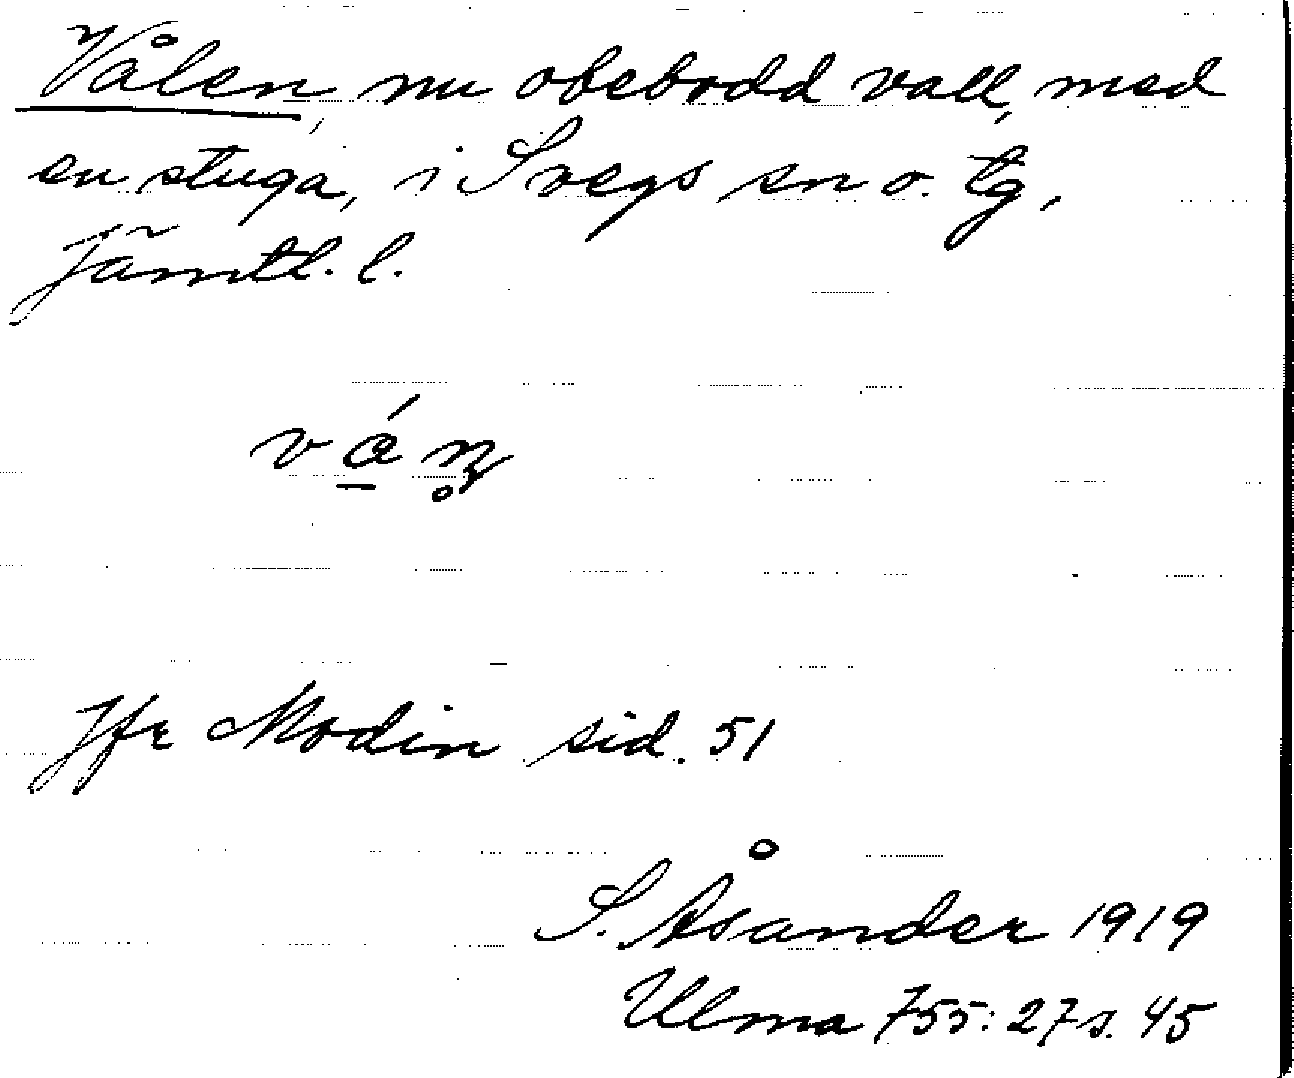 Vålen, nu obebodd vall, med
en stuga, i Svegs sn o. tg,
Jämtl. l.
Jfr Modin sid. 51
S. Åsander 1919
Ulma 755:27 s. 45